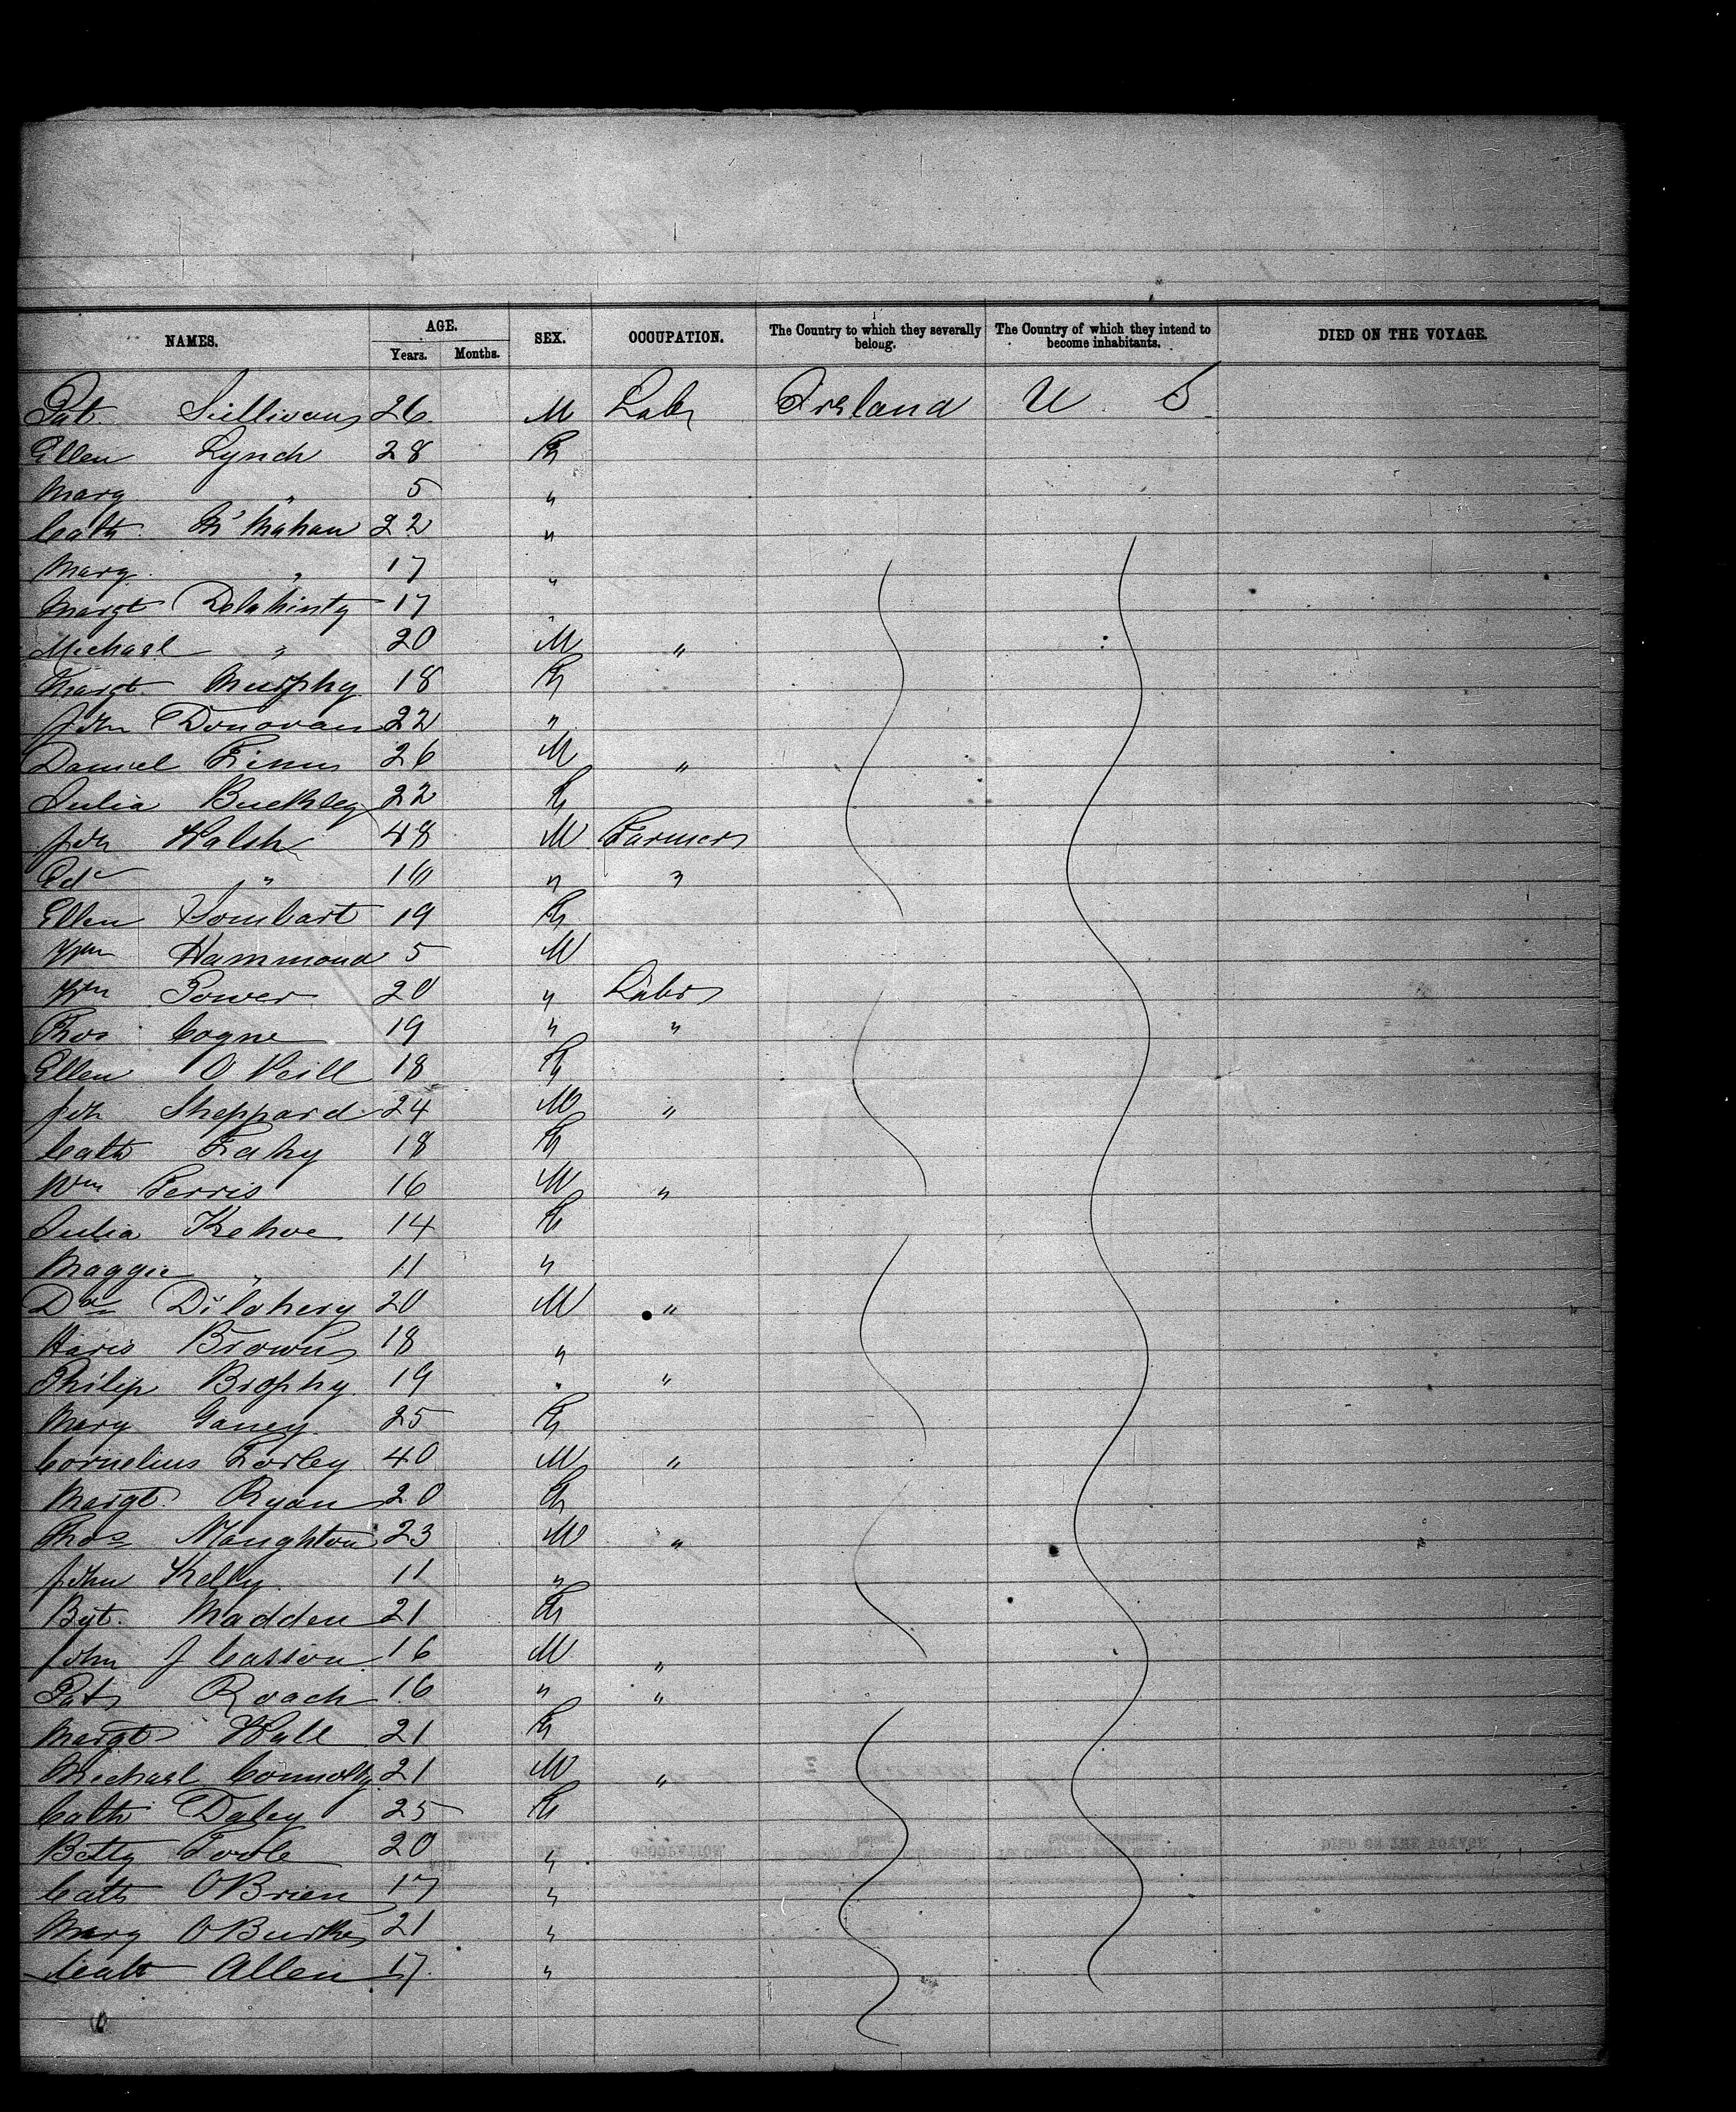 NAMES. AGE. SEX. OCCUPATION. The Country to which they severally belong. The Country of which they intend to become inhabitants. DIED ON THE VOYAGE.
Years. Months.
Pat. Sullivan 26 M Labr Ireland U. S.
Ellen Lynch 28 F
Mary " 5 "
Cath McMahan 22 "
Mary " 17 "
Margt Delahinty 17 "
Michael " 20 M "
Margt Murphy 18 F
John Donovan 22 "
Daniel 26 M "
Julia Buckley 22 F
Jon Walsh 48 M Farmer
Ed " 16 " "
Ellen 19 F
Wm Hammond 5 M
Wm Power 20 " Labr
Thos Cogne 19 " "
Ellen O Neill 18 F
Jon Sheppard 24 M "
Cath Fahy 18 F
Wm Ferris 16 M "
Julia Kehoe 14 F
Maggie " 11 "
Dan Dilohery 20 M "
Brown 18 "
Philip Brophy 19 " "
Mary Ganey 25 F
Cornelius 40 M "
Margt Ryan 20 F
Thos Naughton 23 M "
John Kelly 11 "
Byt. Madden 21 F
John J Casson 16 M "
Pat Roach 16 " "
Margt Wall 21 F
Michael Connolly 21 M "
Cath Daley 25 F
Betty Toole 20 "
Cath OBrien 17 "
Mary OBurke 21 "
Cath Allen 17 "